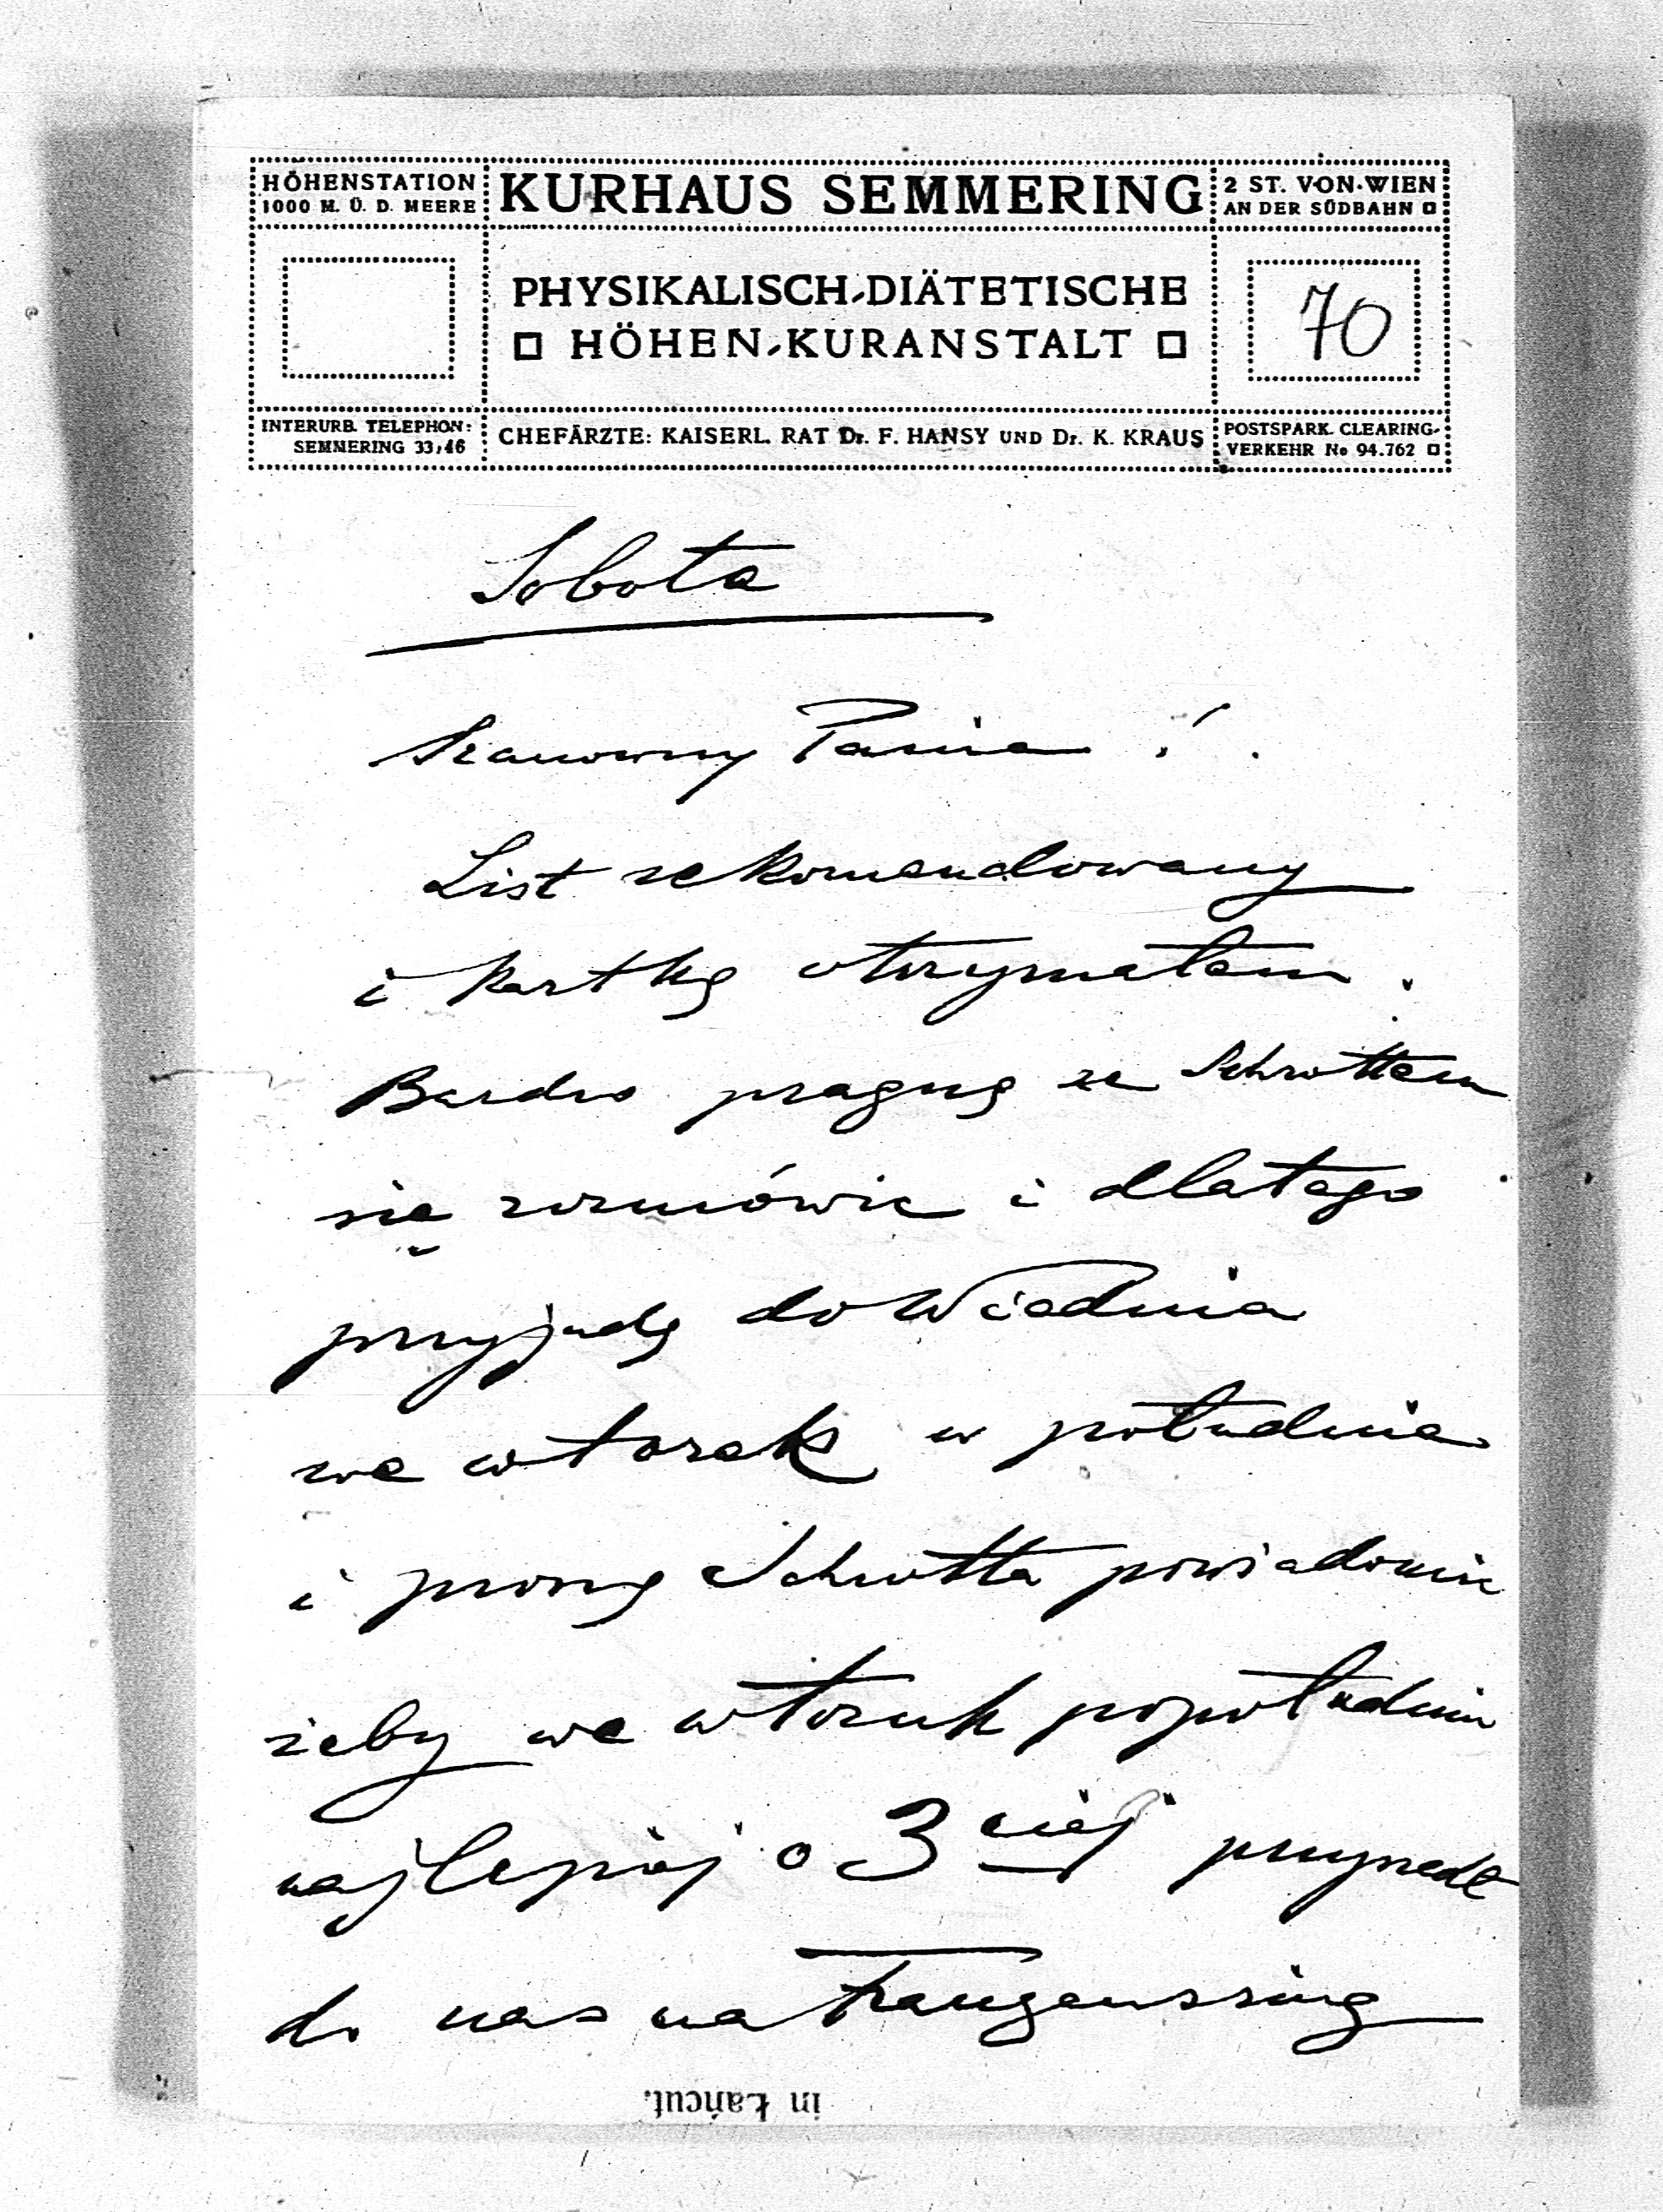 HÖHENSTATION
1000 M. Ü. D. MEERE
KURHAUS SEMMERING
2 ST. VON WIEN
AN DER SÜDBAHN
PHYSIKALISCH-DIÄTETISCHE
HÖHEN-KURANSTALT
70
INTERURB. TELEPHON:
SEMMERING 33, 46
CHEFÄRZTE: KAISERL. RAT Dr. F. HANSY UND Dr. K. KRAUS
POSTSPARK. CLEARING-
VERKEHR No 94.762
Sobota
Szanowny Panie!
List rekomendowany
i kartkę otrzymałem.
Bardzo pragnę ze Schrottem
się rozmówić i dlatego
przyjadę do Wiednia
we wtorek w południe
i proszę Schrotta powiadomić
żeby we wtorek popołudniu
najlepiej o 3ciej przyszedł
do nas na
in Łańcut.